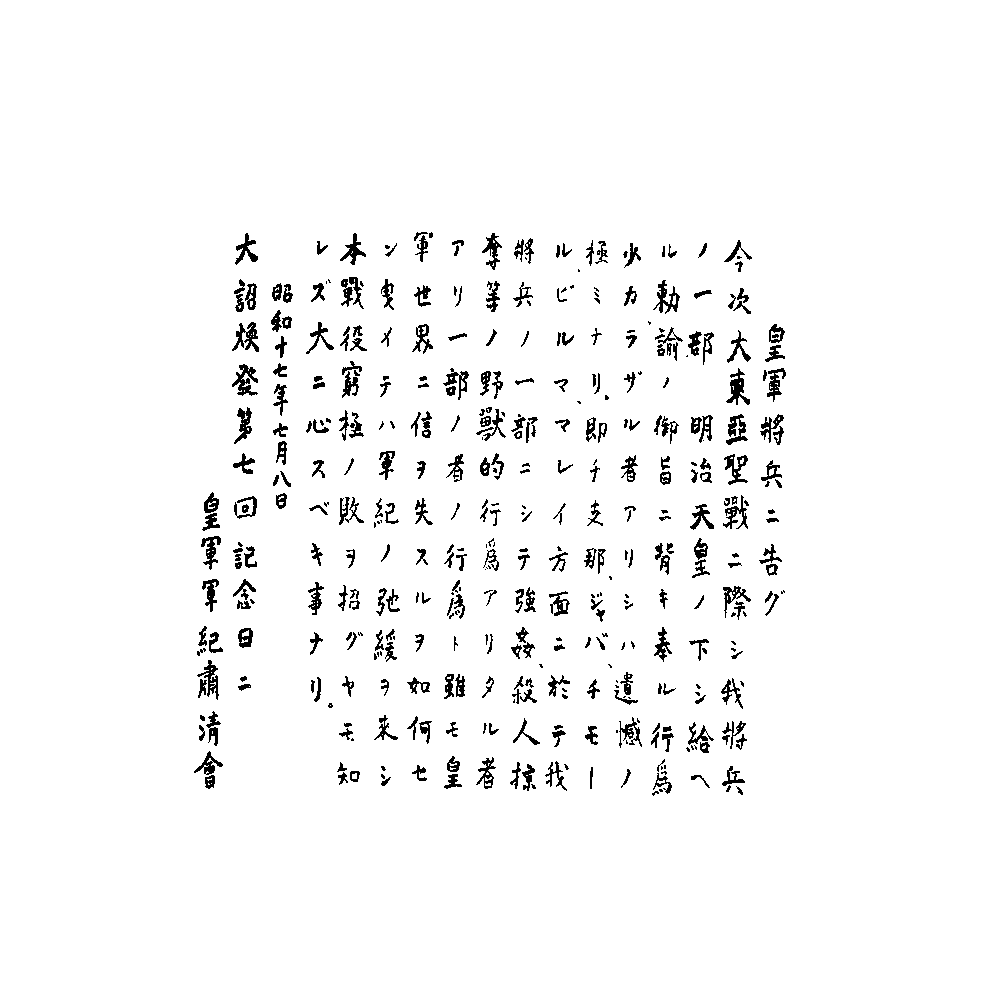 皇軍將兵ニ告グ
今次大東亞聖戰ニ際シ我將兵
ノ一部 明治天皇ノ下シ給ヘ
ル勅諭ノ御旨ニ背キ奉ル行爲
少カラザル者アリシハ遺憾ノ
極ミナリ。即チ支那、ジャバ、チモー
ル、ビルマ、マレイ方面ニ於テ我
將兵ノ一部ニシテ強姦、殺人掠
奪等ノ野獸的行爲アリタル者
アリ一部ノ者ノ行爲ト雖モ皇
軍世界ニ信ヲ失スルヲ如何セ
ン曳イテハ軍紀ノ弛緩ヲ來シ
本戰役窮極ノ敗ヲ招グヤモ知
レズ大ニ心スベキ事ナリ。
昭和十七年七月八日
大詔煥發第七回記念日ニ
皇軍軍紀肅清會